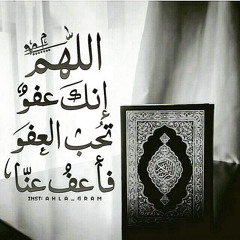 اللهُمَّ
إنكَ عفوٌ
تُحبُ العفوَ
فأعفُ عنّا
INST: AHLA_GRAM